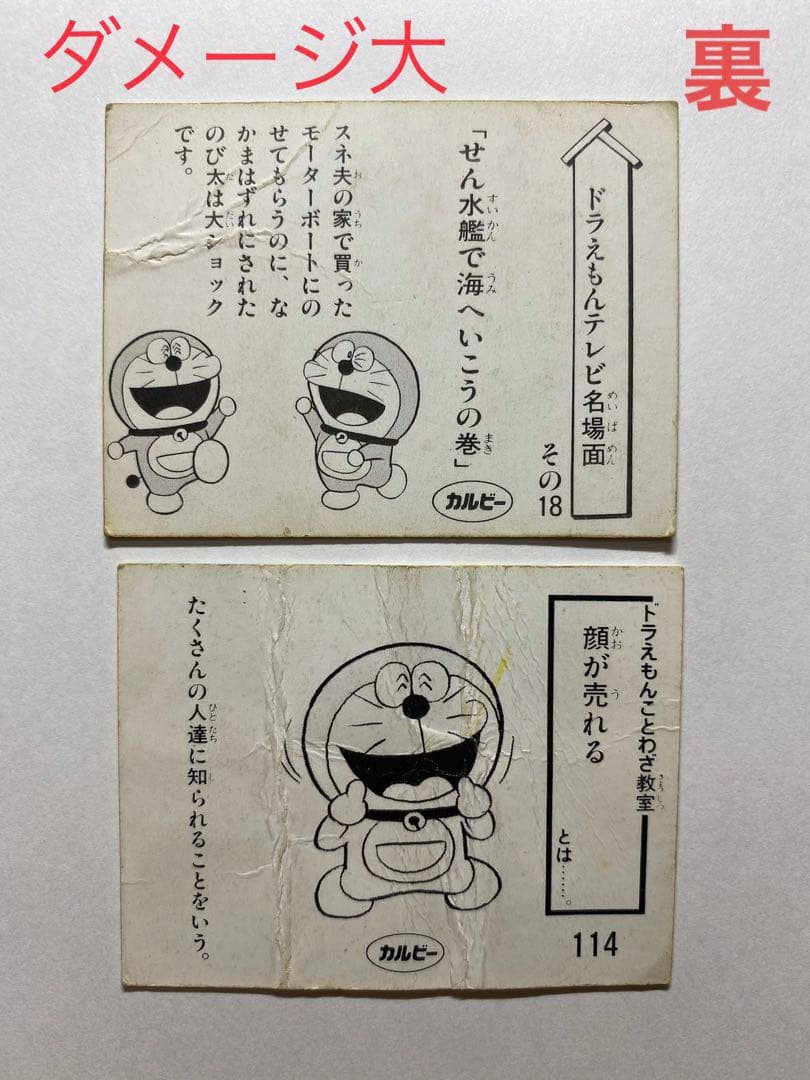 ダメージ大
裏
ドラえもんテレビ名場面
その18
「せん水艦で海へいこうの巻」
スネ夫の家で買った
モーターボートにの
せてもらうのに、な
かまはずれにされた
のび太は大ショック
です。
カルビー
ドラえもんことわざ教室
顔が売れる
とは……。
114
たくさんの人達に知られることをいう。
カルビー